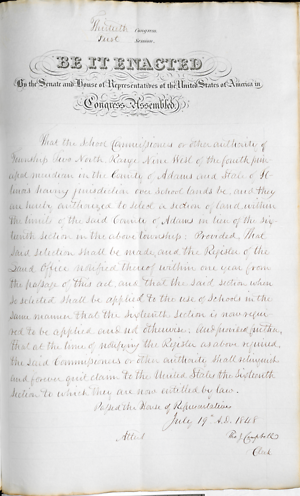 Thirtieth Congress
First Session.
BE IT ENACTED
By the Senate and House of Representatives of the United States of America in
Congress Assembled,
That the School Commissioner or other authority of
Township Two North, Range Nine West of the fourth prin-
cipal meridian in the County of Adams and State of Il-
linois having jurisdiction over School lands be, and they
are hereby authorized to select a section of land within
the limits of the said County of Adams in lieu of the six-
teenth section in the above township: Provided, That
said selection shall be made and the Register of the
Land Office notified thereof within one year from
the passage of this act, and that the said section when
so selected shall be applied to the use of Schools in the
same manner that the Sixteenth Section is now requi-
red to be applied and not otherwise. And provided further,
that at the time of notifying the Register as above required,
the said Commissioner or other authority shall relinquish
and forever quit claim to the United States the Sixteenth
Section to which they are now entitled by law.
Passed the House of Representatives
July 19th A.D. 1848
Attest
Tho. J. Campbell
Clerk